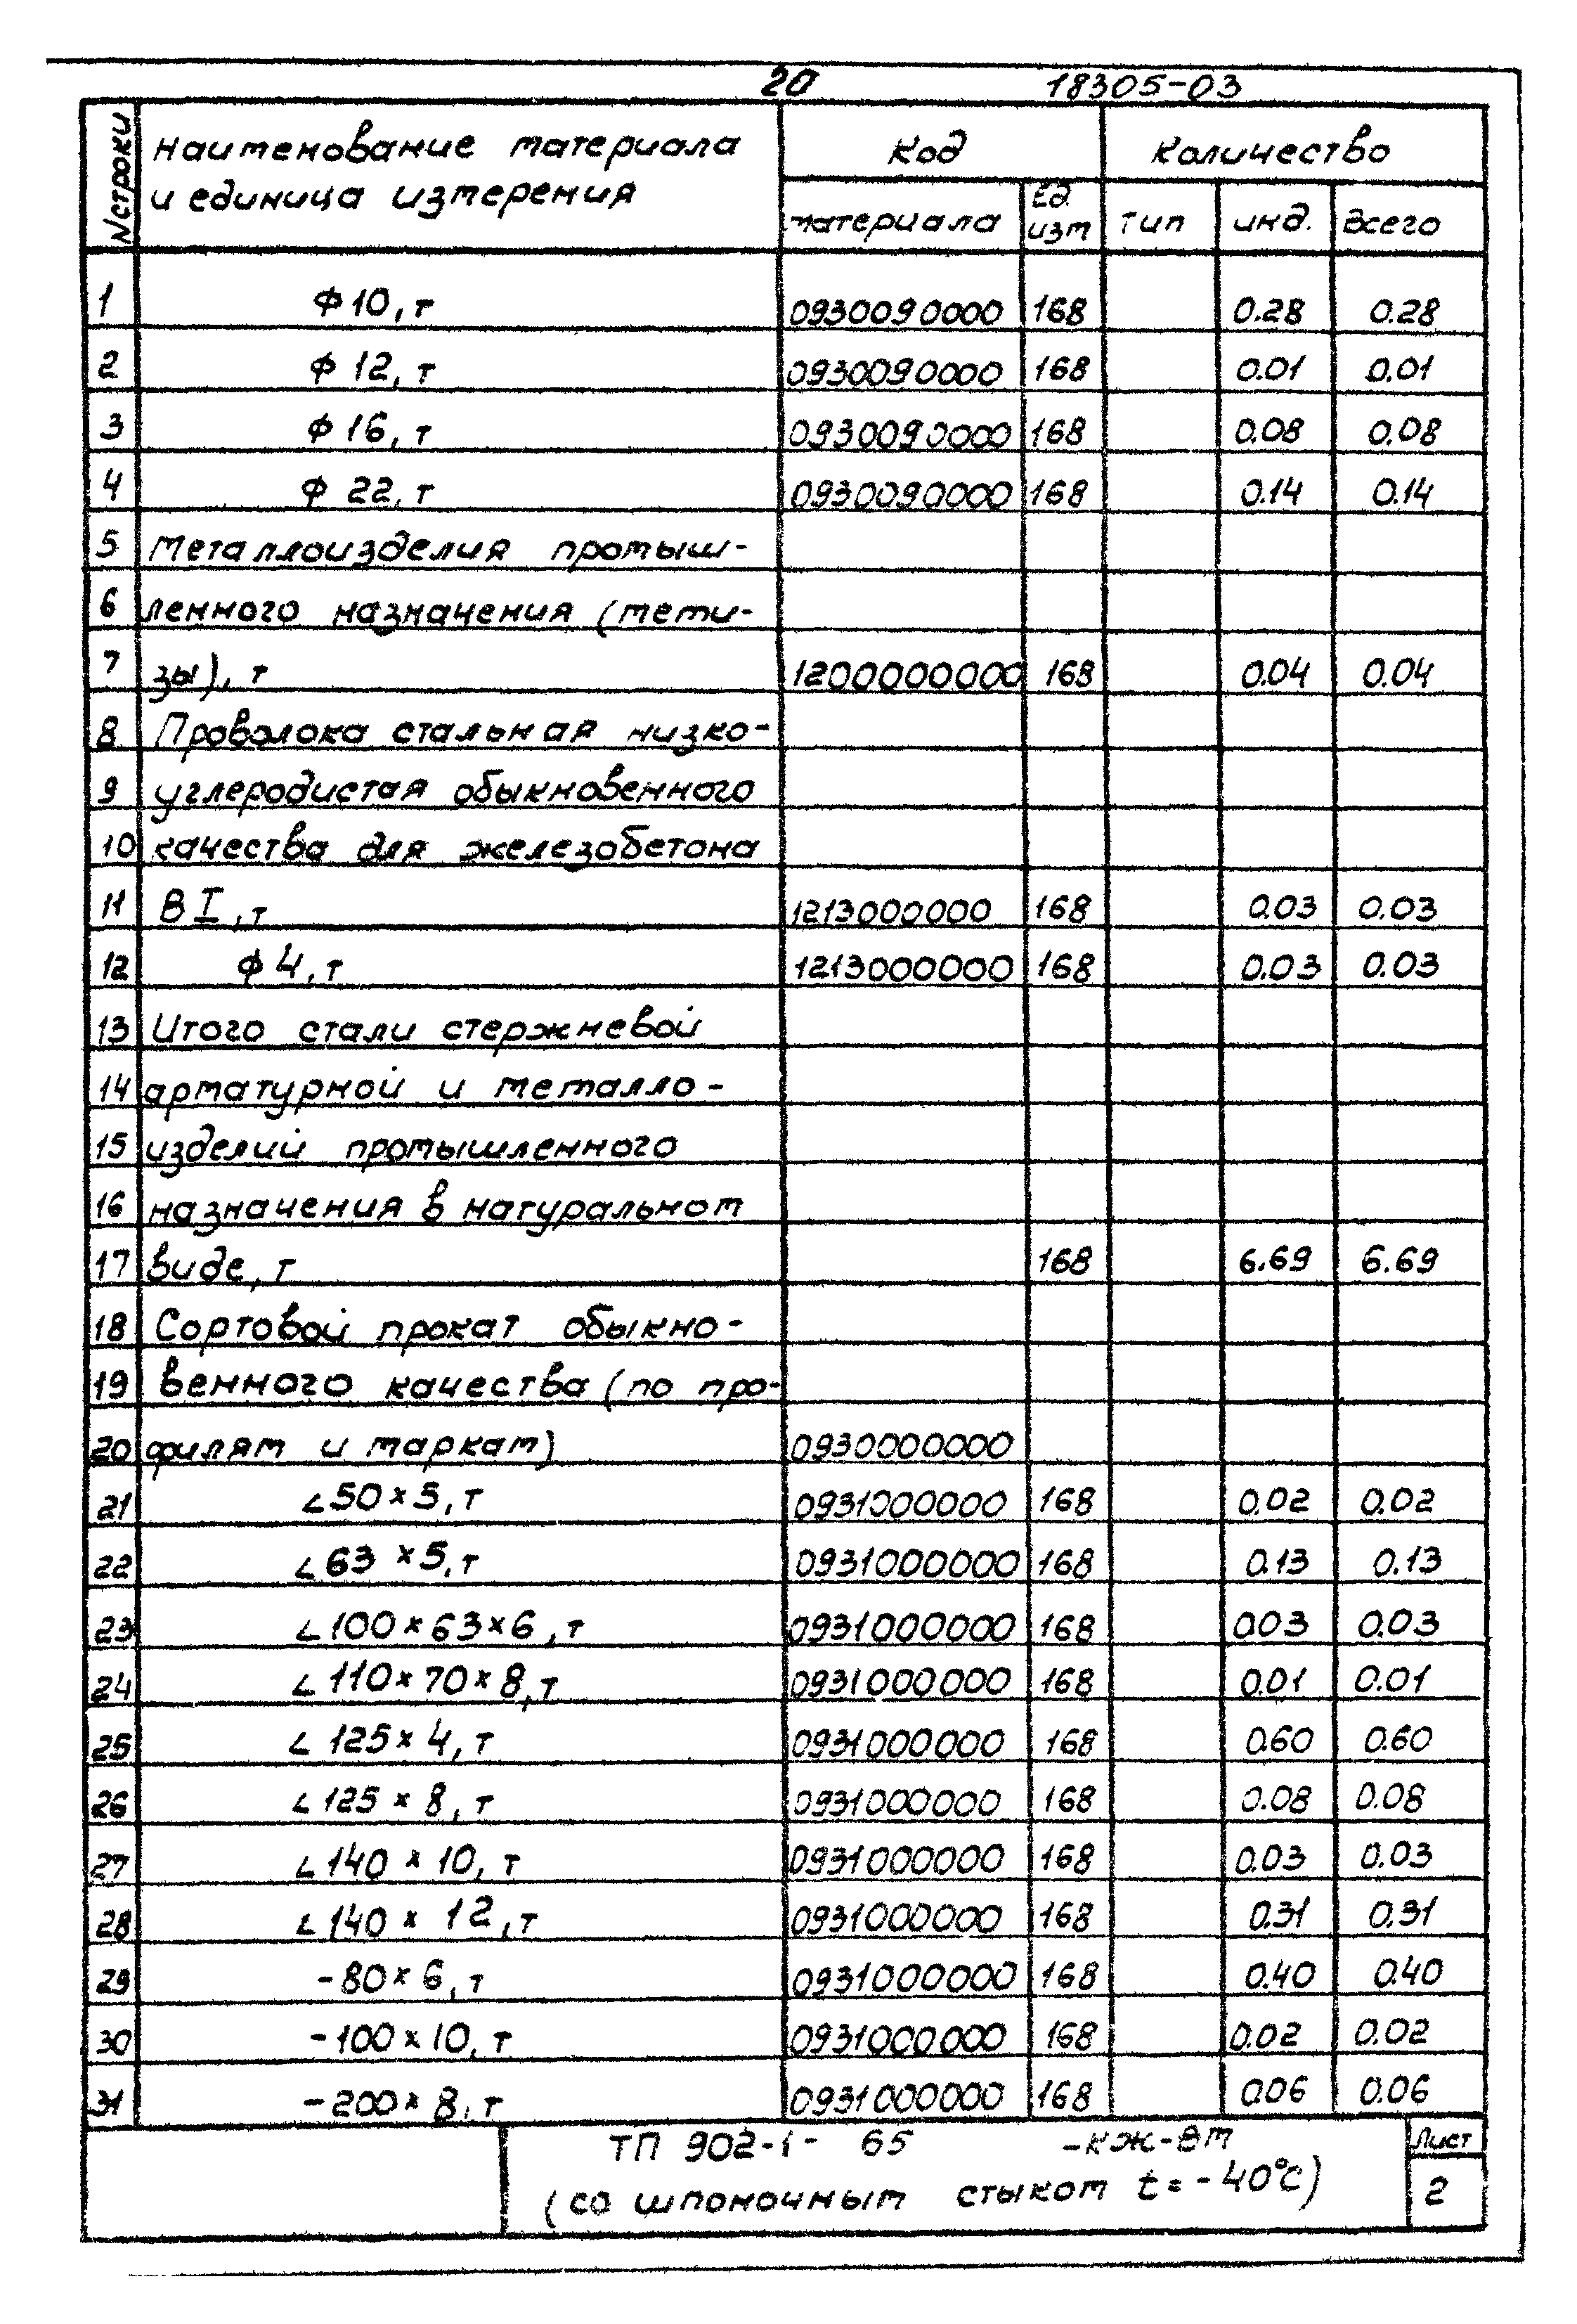 20 18305-03
N строки Наименование материала и единица измерения Код Количество
материала Ед. изм тип инд. Всего
1 ф10, т 0930090000 168 0.28 0.28
2 ф 12, т 0930090000 168 0.01 0.01
3 ф 16, т 0930090000 168 0.08 0.08
4 ф 22, т 0930090000 168 0.14 0.14
5 Металлоизделия промыш-
6 ленного назначения (мети-
7 зы), т 1200000000 168 0.04 0.04
8 Проволока стальная низко-
9 углеродистая обыкновенного
10 качества для железобетона
11 ВI, т 1213000000 168 0.03 0.03
12 ф 4, т 1213000000 168 0.03 0.03
13 Итого стали стержневой
14 арматурной и металло-
15 изделий промышленного
16 назначения в натуральном
17 виде, т 168 6.69 6.69
18 Сортовой прокат обыкно-
19 венного качества (по про-
20 филям и маркам) 0930000000
21 ∠50×5, т 0931000000 168 0.02 0.02
22 ∠63×5, т 0931000000 168 0.13 0.13
23 ∠100×63×6, т 0931000000 168 0.03 0.03
24 ∠110×70×8, т 0931000000 168 0.01 0.01
25 ∠125×4, т 0931000000 168 0.60 0.60
26 ∠125×8, т 0931000000 168 0.08 0.08
27 ∠140×10, т 0931000000 168 0.03 0.03
28 ∠140×12, т 0931000000 168 0.31 0.31
29 -80×6, т 0931000000 168 0.40 0.40
30 -100×10, т 0931000000 168 0.02 0.02
31 -200×8, т 0931000000 168 0.06 0.06
ТП 902-1- 65 -КЖ-ВМ Лист
(со шпоночным стыком t=-40°С) 2